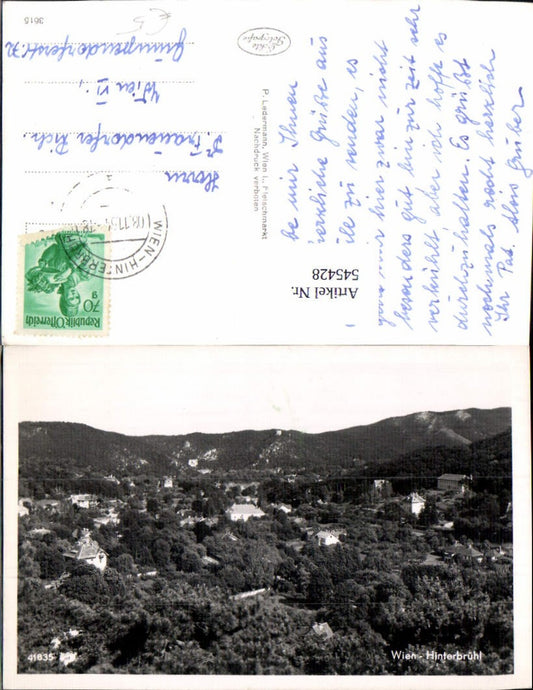 3615
€5
Herrn
Wien VI.,
P. Ledermann, Wien I., Fleischmarkt
Nachdruck verboten
WIEN-HINTERBRÜHL
70 g
Republik Österreich
Artikel Nr.
545428
be mir Ihnen
herzliche Grüße aus
zu senden, es
geht mir hier zwar nicht
besonders gut bin zur zeit sehr
verkühlt, aber ich hoffe es
durchzuhalten. Es grüßt
nochmals recht herzlich
Ihr Pat. Alois Gruber
41635
Wien - Hinterbrühl